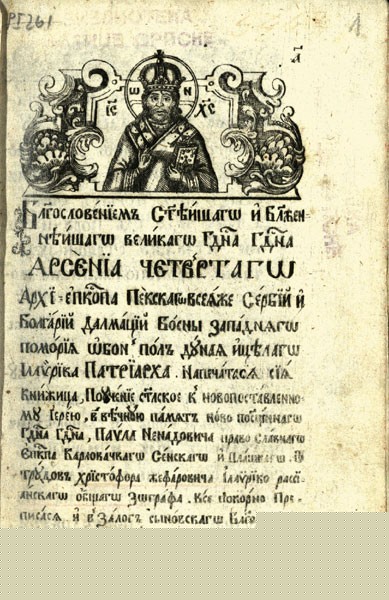 1
ІС ХС
Блгословенїемъ Стѣишагѡ и Блжен-
нѣишагѡ великагѡ Гдна Гдна
АРСЕНІА ЧЕТВЕРТАГѠ
Архї-епкопа Пекскагѡ всеѧже Сербїй и
Болгарїй Далмацїй Босны Западнѧгѡ
поморїѧ ѡбон полъ дунаѧ ицѣлагѡ
Иллѵрїка ПАТРІАРХА. Напечатасѧ сїѧ
книжица, Поученїе ст҃лское к новопоставленно-
му Їерею, в вѣчную памѧть ново
Гдна Гдна, Паѵла Ненадовича право славнагѡ
Епкпа Карловачкагѡ Сенскагѡ и
трудовъ Хрїстофора жефаровича їллѵрїко расс-
їанскагѡ общагѡ Зѡграфа. Все покорно Пре-
писасѧ и в залогъ сыновскагѡ